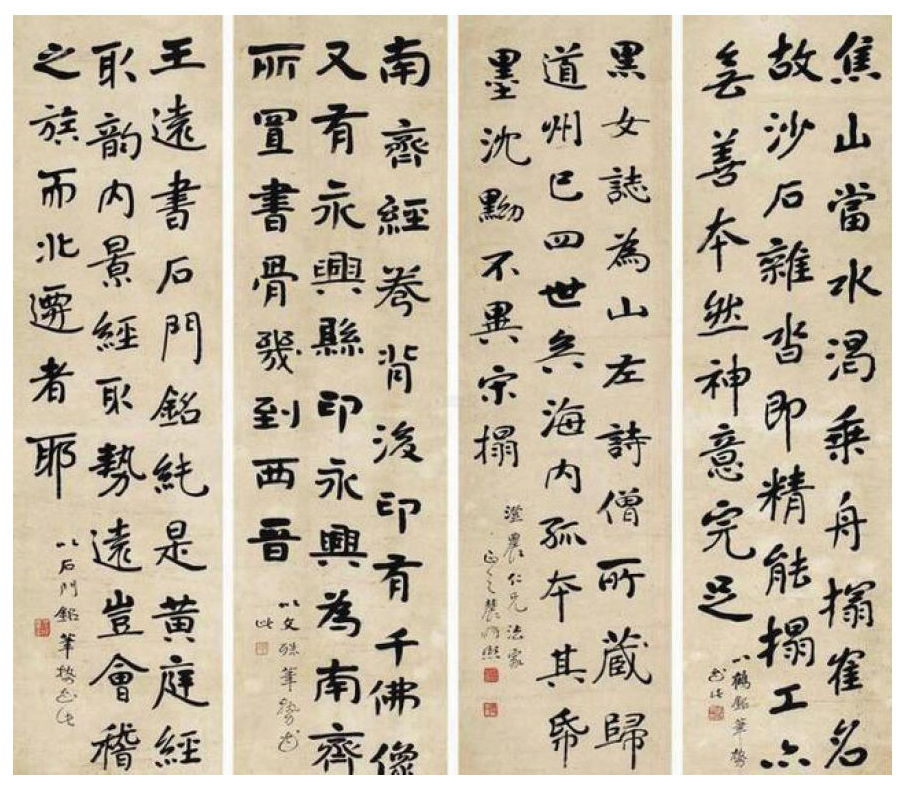 焦山當水渴乘舟搨隺名
故沙石雜沓即精能搨工亦
無善本然神意完足
以鶴銘筆勢
書此
黑女誌為山左詩僧所藏歸
道州已四世矣海内孤本其帋
墨沈黝不異宋搨
仁兄法家
正之農髯熙
南齊經卷背後印有千佛像
又有永興縣印永興為南齊
所置書骨幾到西晉
以文殊筆勢書
此
王遠書石門銘純是黃庭經
取韻内景經取勢遠豈會稽
之族而北遷者耶
以石門銘筆勢書此